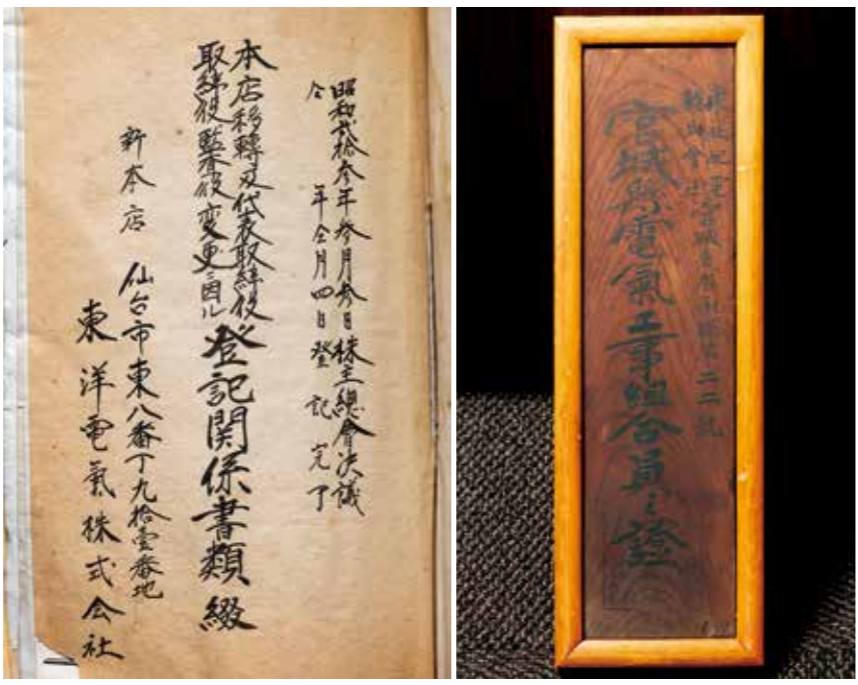 昭和弐拾参年参月参日株主總會决議
仝 年仝月四日登記完了
本店移轉及代表取締役
取締役監査役変更ニ因ル
登記関係書類綴
新本店 仙台市東八番丁九拾壹番地
東洋電氣株式会社
宮城縣電氣工事組合員之證